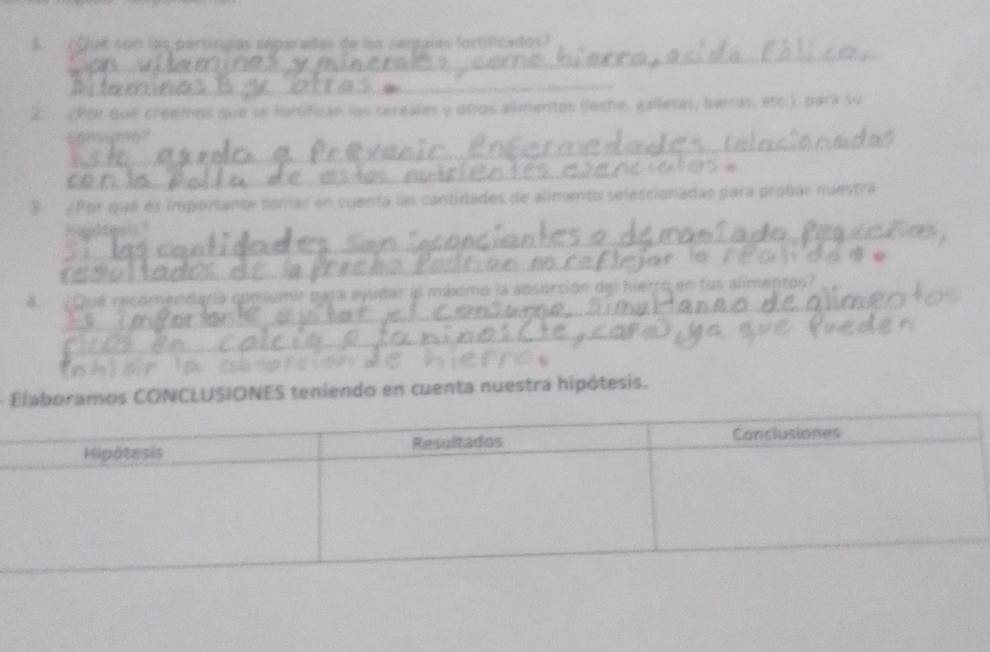 1. ¿Qué son las partículas separadas de los cereales fortificados?
Son vitaminas y minerales, como hierro, acido Fólico,
Bitaminas B y otras.
2. ¿Por qué creemos que se fortifican los cereales y otros alimentos (leche, galletas, barras, etc.), para su
consumo?
Esto ayuda a Prevenir enfermedades relacionadas
con la falta de estos nutrientes esenciales.
3. ¿Por qué es importante tomar en cuenta las cantidades de alimento seleccionadas para probar nuestra
hipótesis?
Si las cantidades son inconcientes o demaniado Pequeñas,
resultados de la prueba Podrian no reflejar la realidad.
4. ¿Qué recomendaría consumir para ayudar al máximo la absorción del hierro en tus alimentos?
Es importante evitar el consumo simultaneo de alimentos
ricos en calcio o taninos (te, cafe), ya que Pueden
inhibir la absorcion de hierro.
- Elaboramos CONCLUSIONES teniendo en cuenta nuestra hipótesis.
Hipótesis Resultados Conclusiones